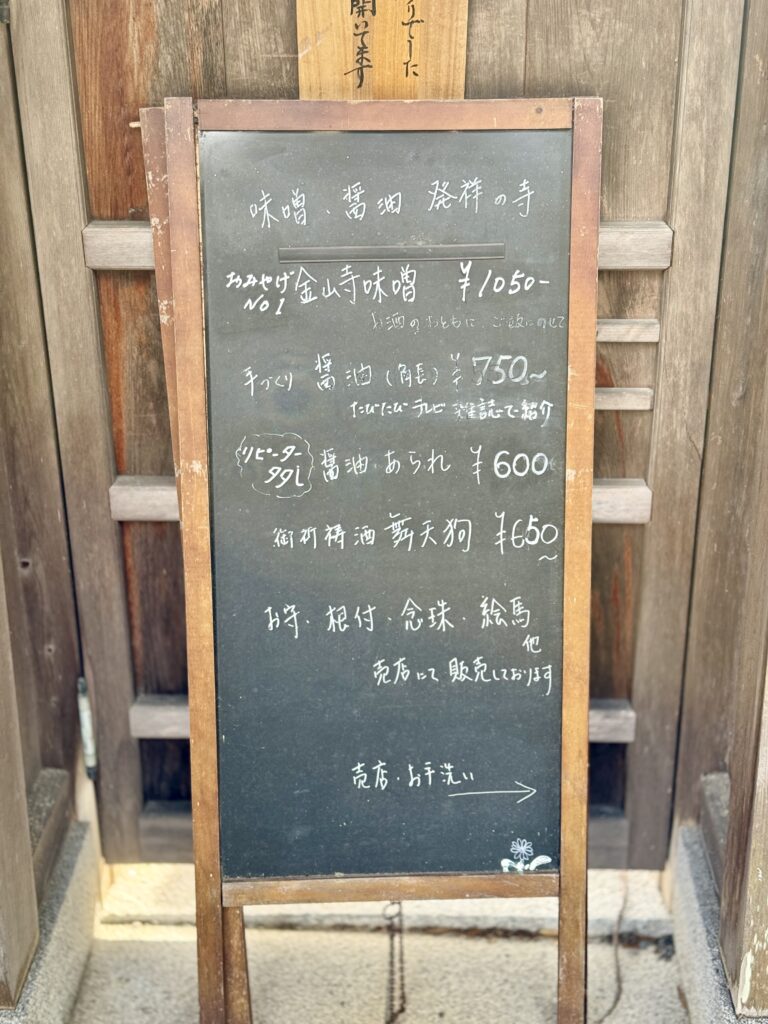 りでした
開いてます
味噌、醤油 発祥の寺
おみやげ NO1 金山寺味噌 ¥1050-
お酒のおともに ご飯にのせて
手づくり 醤油(角長) ¥750~
たびたび テレビ 雑誌で紹介
リピーター 多し 醤油 あられ ¥600
御祈祷酒 舞天狗 ¥650~
お守・根付・念珠・絵馬
他
売店にて 販売しております
売店・お手洗い →